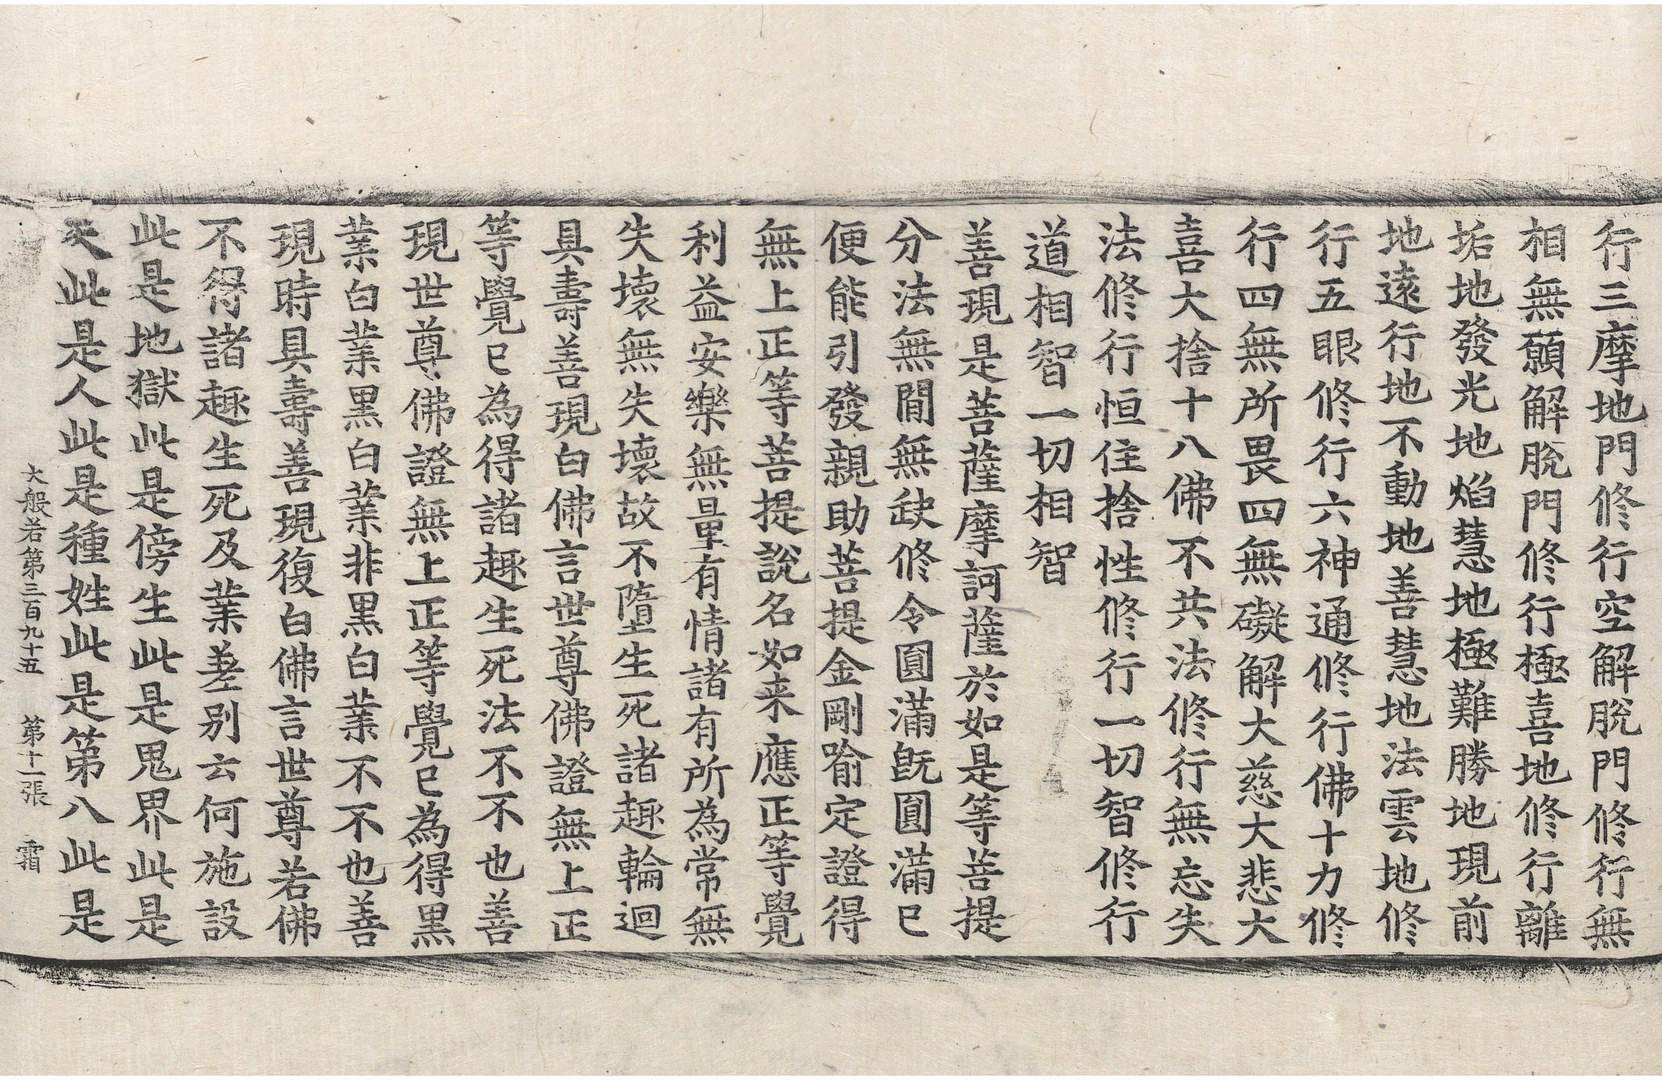 行三摩地門修行空解脫門修行無
相無願解脫門修行極喜地修行離
垢地發光地焰慧地極難勝地現前
地遠行地不動地善慧地法雲地修
行五眼修行六神通修行佛十力修
行四無所畏四無礙解大慈大悲大
喜大捨十八佛不共法修行無忘失
法修行恒住捨性修行一切智修行
道相智一切相智
善現是菩薩摩訶薩於如是等菩提
分法無閒無缺修令圓滿旣圓滿已
便能引發親助菩提金剛喻定證得
無上正等菩提說名如来應正等覺
利益安樂無量有情諸有所為常無
失壞無失壞故不墮生死諸趣輪迴
具壽善現白佛言世尊佛證無上正
等覺已為得諸趣生死法不不也善
現世尊佛證無上正等覺已為得黑
業白業黑白業非黑白業不不也善
現時具壽善現復白佛言世尊若佛
不得諸趣生死及業差别云何施設
此是地獄此是傍生此是鬼界此是
天此是人此是種姓此是第八此是
大般若第三百九十五 第十一張 霜